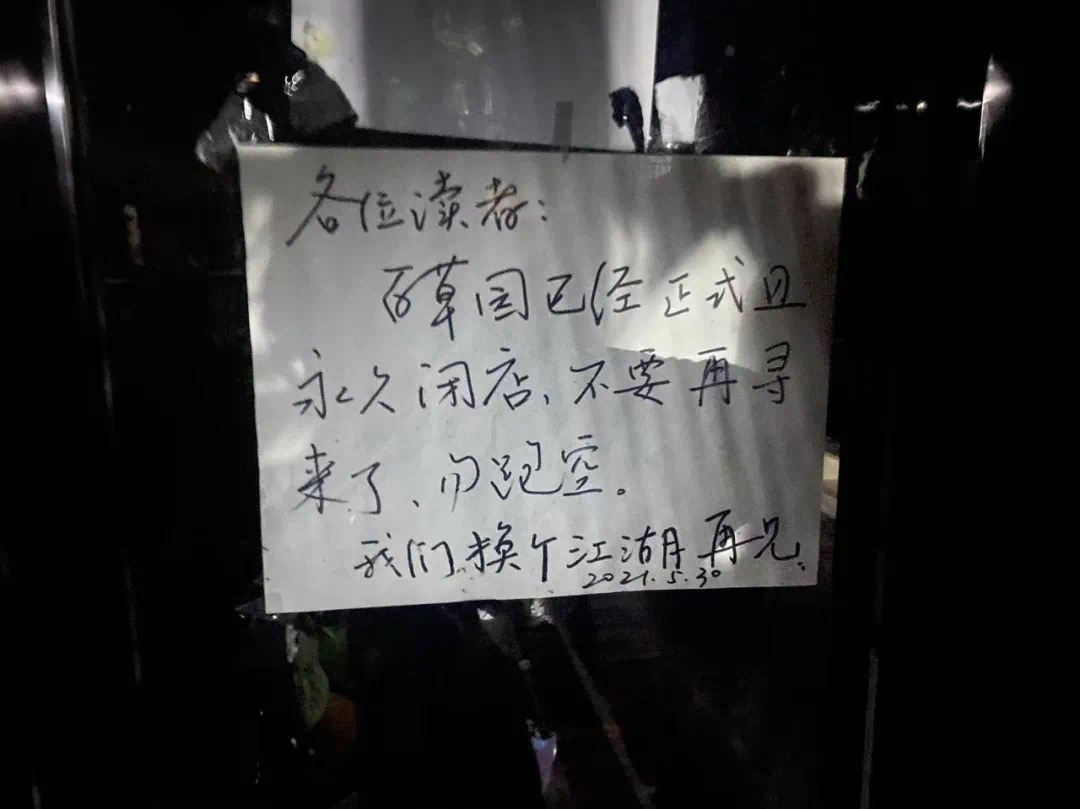 各位读者：
百草园已经正式且
永久闭店、不要再寻
来了、勿跑空。
我们换个江湖再见。
2021.5.30